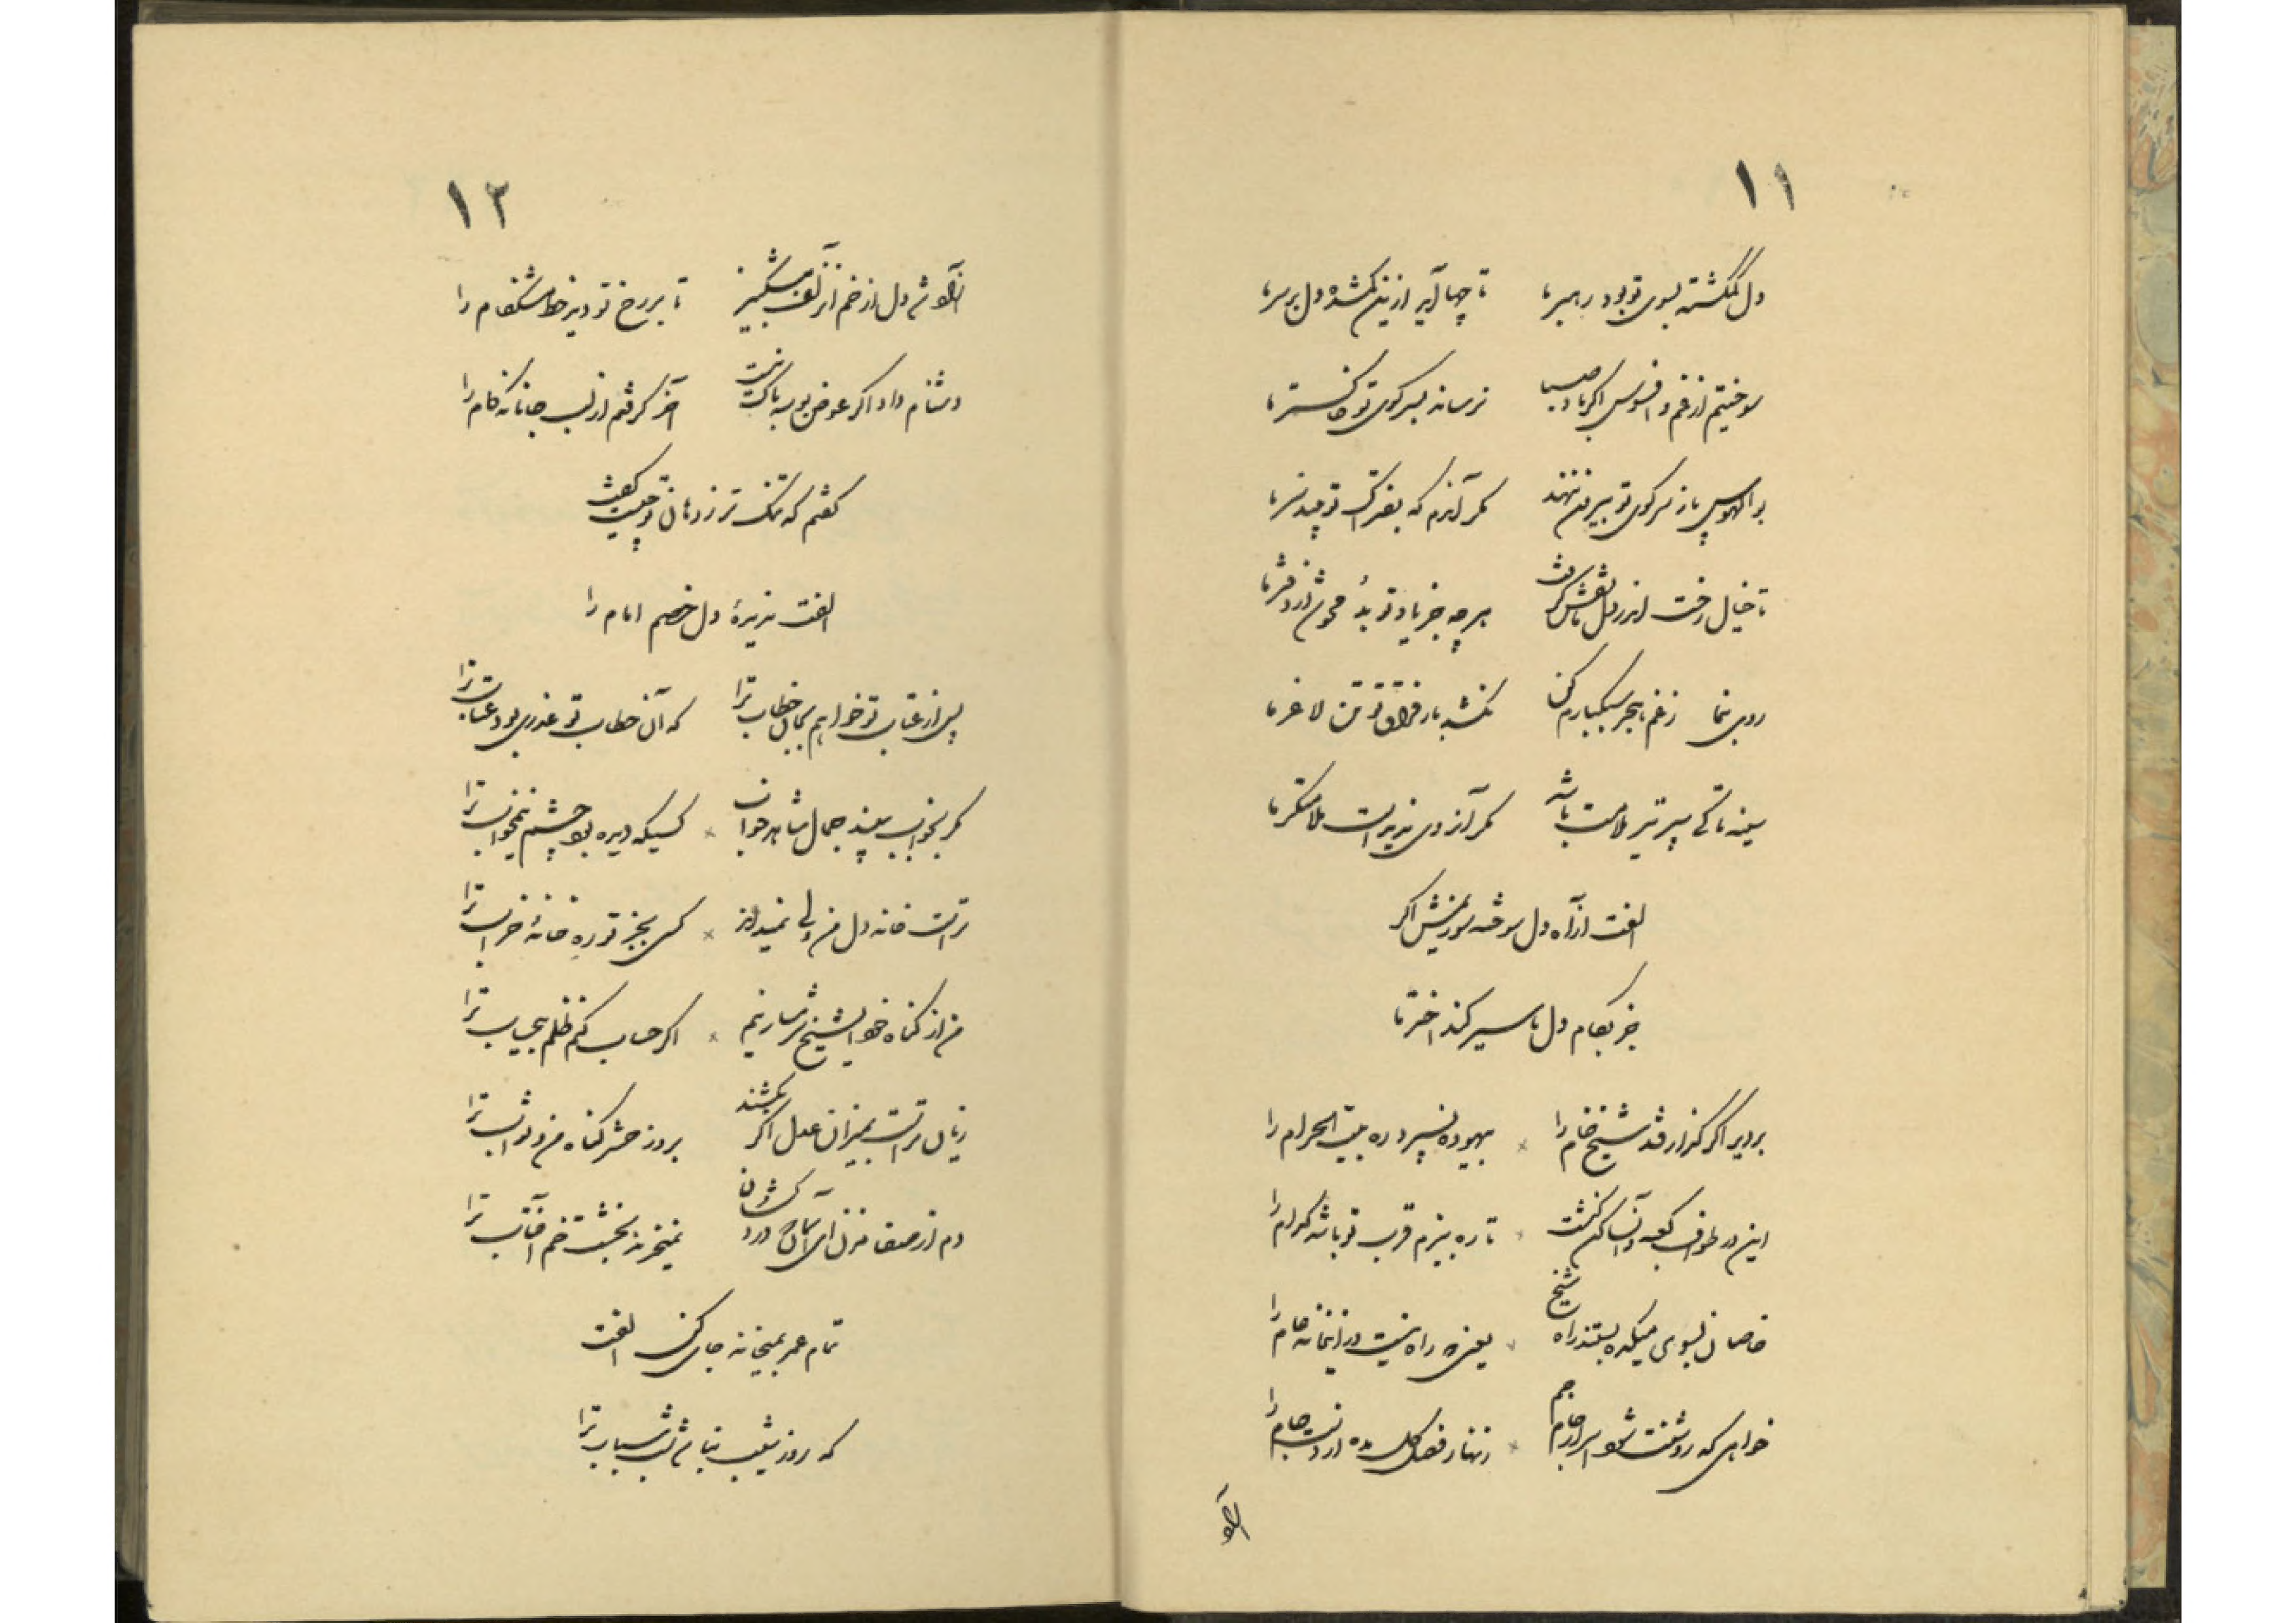 ۱۱
دل گمگشته بسوی تو بود رهبر ما تا چها آید ازین گمشده دل بر سر ما
سوختیم از غم و افسوس اگر باد صبا نرساند بسر کوی تو خاکستر ما
بوالهوس پا ز سر کوی تو بیرون ننهد مگر آندم که بفتراک تو پیچد سر ما
تا خیال رخت اندر دل ما نقش گرفت هر چه جز یاد تو بد محو شد از دفتر ما
روی بنما ز غم هجر سبکبارم کن نکشد بار فراق تو تن لاغر ما
سینه تا کی سپر تیر ملامت باشد مگر آنروی ندیدست ملامتگر ما
الفت از آه دل سوخته سوزیمش اگر
جز بکام دل ما سیر کند اختر ما
بر دیر اگر گذار فتد شیخ خام را بیهوده نسپرد ره بیت الحرام را
این در طواف کعبه و آن ساکن کنشت تا ره ببزم قرب تو باشد کدام را
خاصان بسوی میکده بستند راه شیخ یعنی که راه نیست در اینخانه عام را
خواهی که روشنت شود اسرار جام جم زنهار فصل گل مده از دست جام را
آهو
۱۲
آهو شد دل از خم آن زلف مشکبیز تا بر رخ تو دید خط مشکفام را
دشنام داد اگر عوض بوسه باک نیست آخر گرفتم از لب جانانه کام را
گفتم که تنگ تر ز دهان تو چیست گفت
الفت ندیدهٔ دل خصم امام را
پس از عتاب تو خواهم بجان خطاب ترا که آن خطاب تو عذری بود عتاب ترا
مگر بخواب ببیند جمال شاهد خواب کسیکه دیده بود چشم نیمخواب ترا
تراست خانه دل من ولی نمیداند کسی بجز تو ره خانهٔ خراب ترا
من از گناه خود ایشیخ شرمسار نیم اگر حساب کنم ظلم بیحساب ترا
زیان تراست بمیزان عدل اگر بکشند بروز حشر گناه من و ثواب ترا
دم از صفا مزن ای آسمان که در کش دن نمیخرند بخشت خم آفتاب ترا
تمام عمر بمیخانه جای کن الفت
که روز شیب نیابد شب شباب ترا